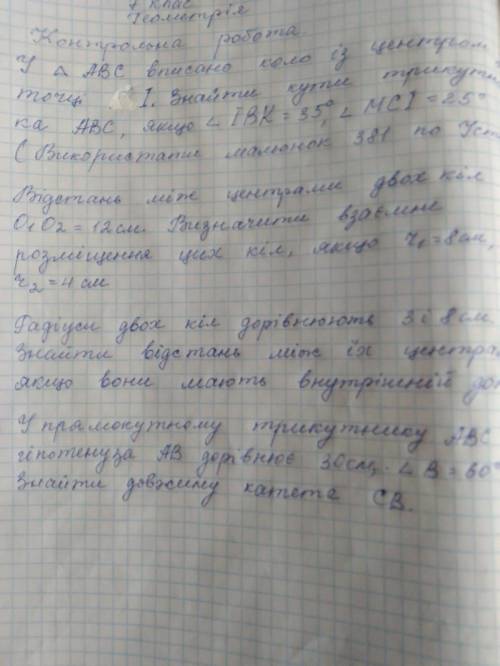 7 клас
Геометрія
Контрольна робота
У △ ABC вписано коло із центром
точці I. Знайти кути трикутни
ка ABC, якщо ∠ IBK = 35°, ∠ MCI = 25°
( Використати малюнок 381 по
Відстань між центрами двох кіл
O1 O2 = 12 см. Визначити взаємне
розміщення цих кіл, якщо r1 = 8 см,
r2 = 4 см
Радіуси двох кіл дорівнюють 3 і 8 см.
Знайти відстань між їх центра
якщо вони мають внутрішній дот
У прямокутному трикутнику ABC
гіпотенуза AB дорівнює 30 см, ∠ B = 60°
Знайти довжину катета CB.